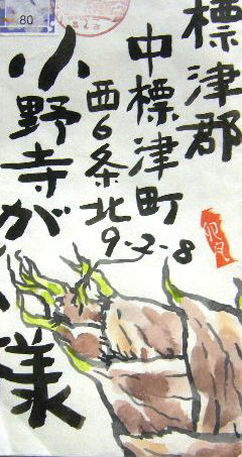 標津郡
中標津町
西6条北
9-2-8
小野寺が 様
80